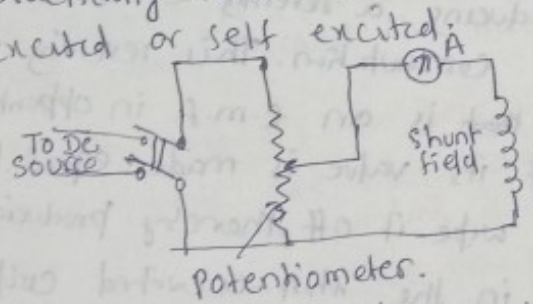 excited or self excited.
A
TO DC
SOURCE
Shunt
field
potentiometer.